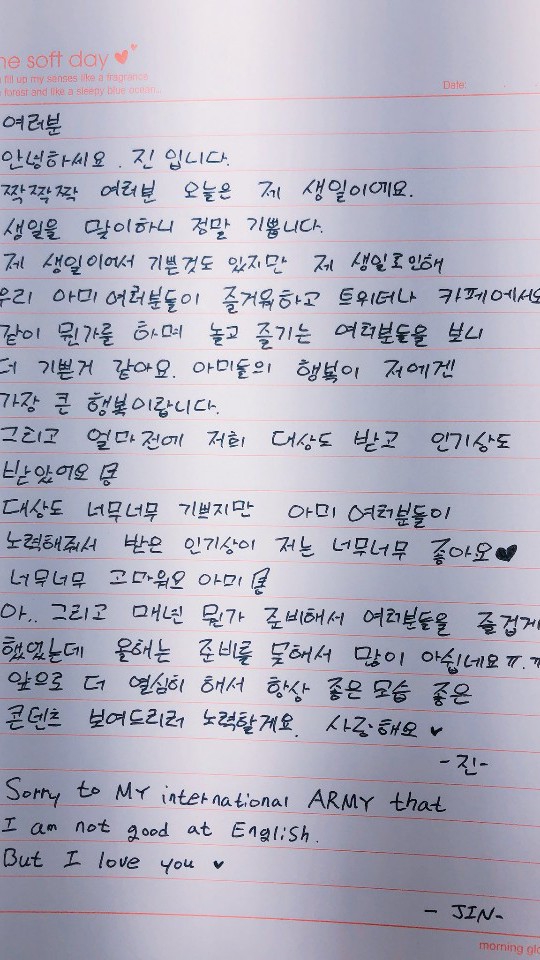 ne soft day
fill up my senses like a fragrance
forest and like a sleepy blue ocean...
Date:
여러분
안녕하세요. 진 입니다.
짝짝짝 여러분 오늘은 제 생일이에요.
생일을 맞이하니 정말 기쁩니다.
제 생일이여서 기쁜것도 있지만 제 생일로인해
우리 아미 여러분들이 즐거워하고 트위터나 카페에서도
같이 뭔가를 하며 놀고 즐기는 여러분들을 보니
더 기쁜거 같아요. 아미들의 행복이 저에겐
가장 큰 행복이랍니다.
그리고 얼마전에 저희 대상도 받고 인기상도
받았어요
대상도 너무너무 기쁘지만 아미 여러분들이
노력해줘서 받은 인기상이 저는 너무너무 좋아요♥
너무너무 고마워요 아미
아.. 그리고 매년 뭔가 준비해서 여러분들을 즐겁게
했었는데 올해는 준비를 못해서 많이 아쉽네요 ㅠ.ㅠ
앞으로 더 열심히 해서 항상 좋은모습 좋은
콘텐츠 보여드리려 노력할게요. 사랑해요 ♥
-진-
Sorry to MY international ARMY that
I am not good at English.
But I love you ♥
- JIN-
morning glo